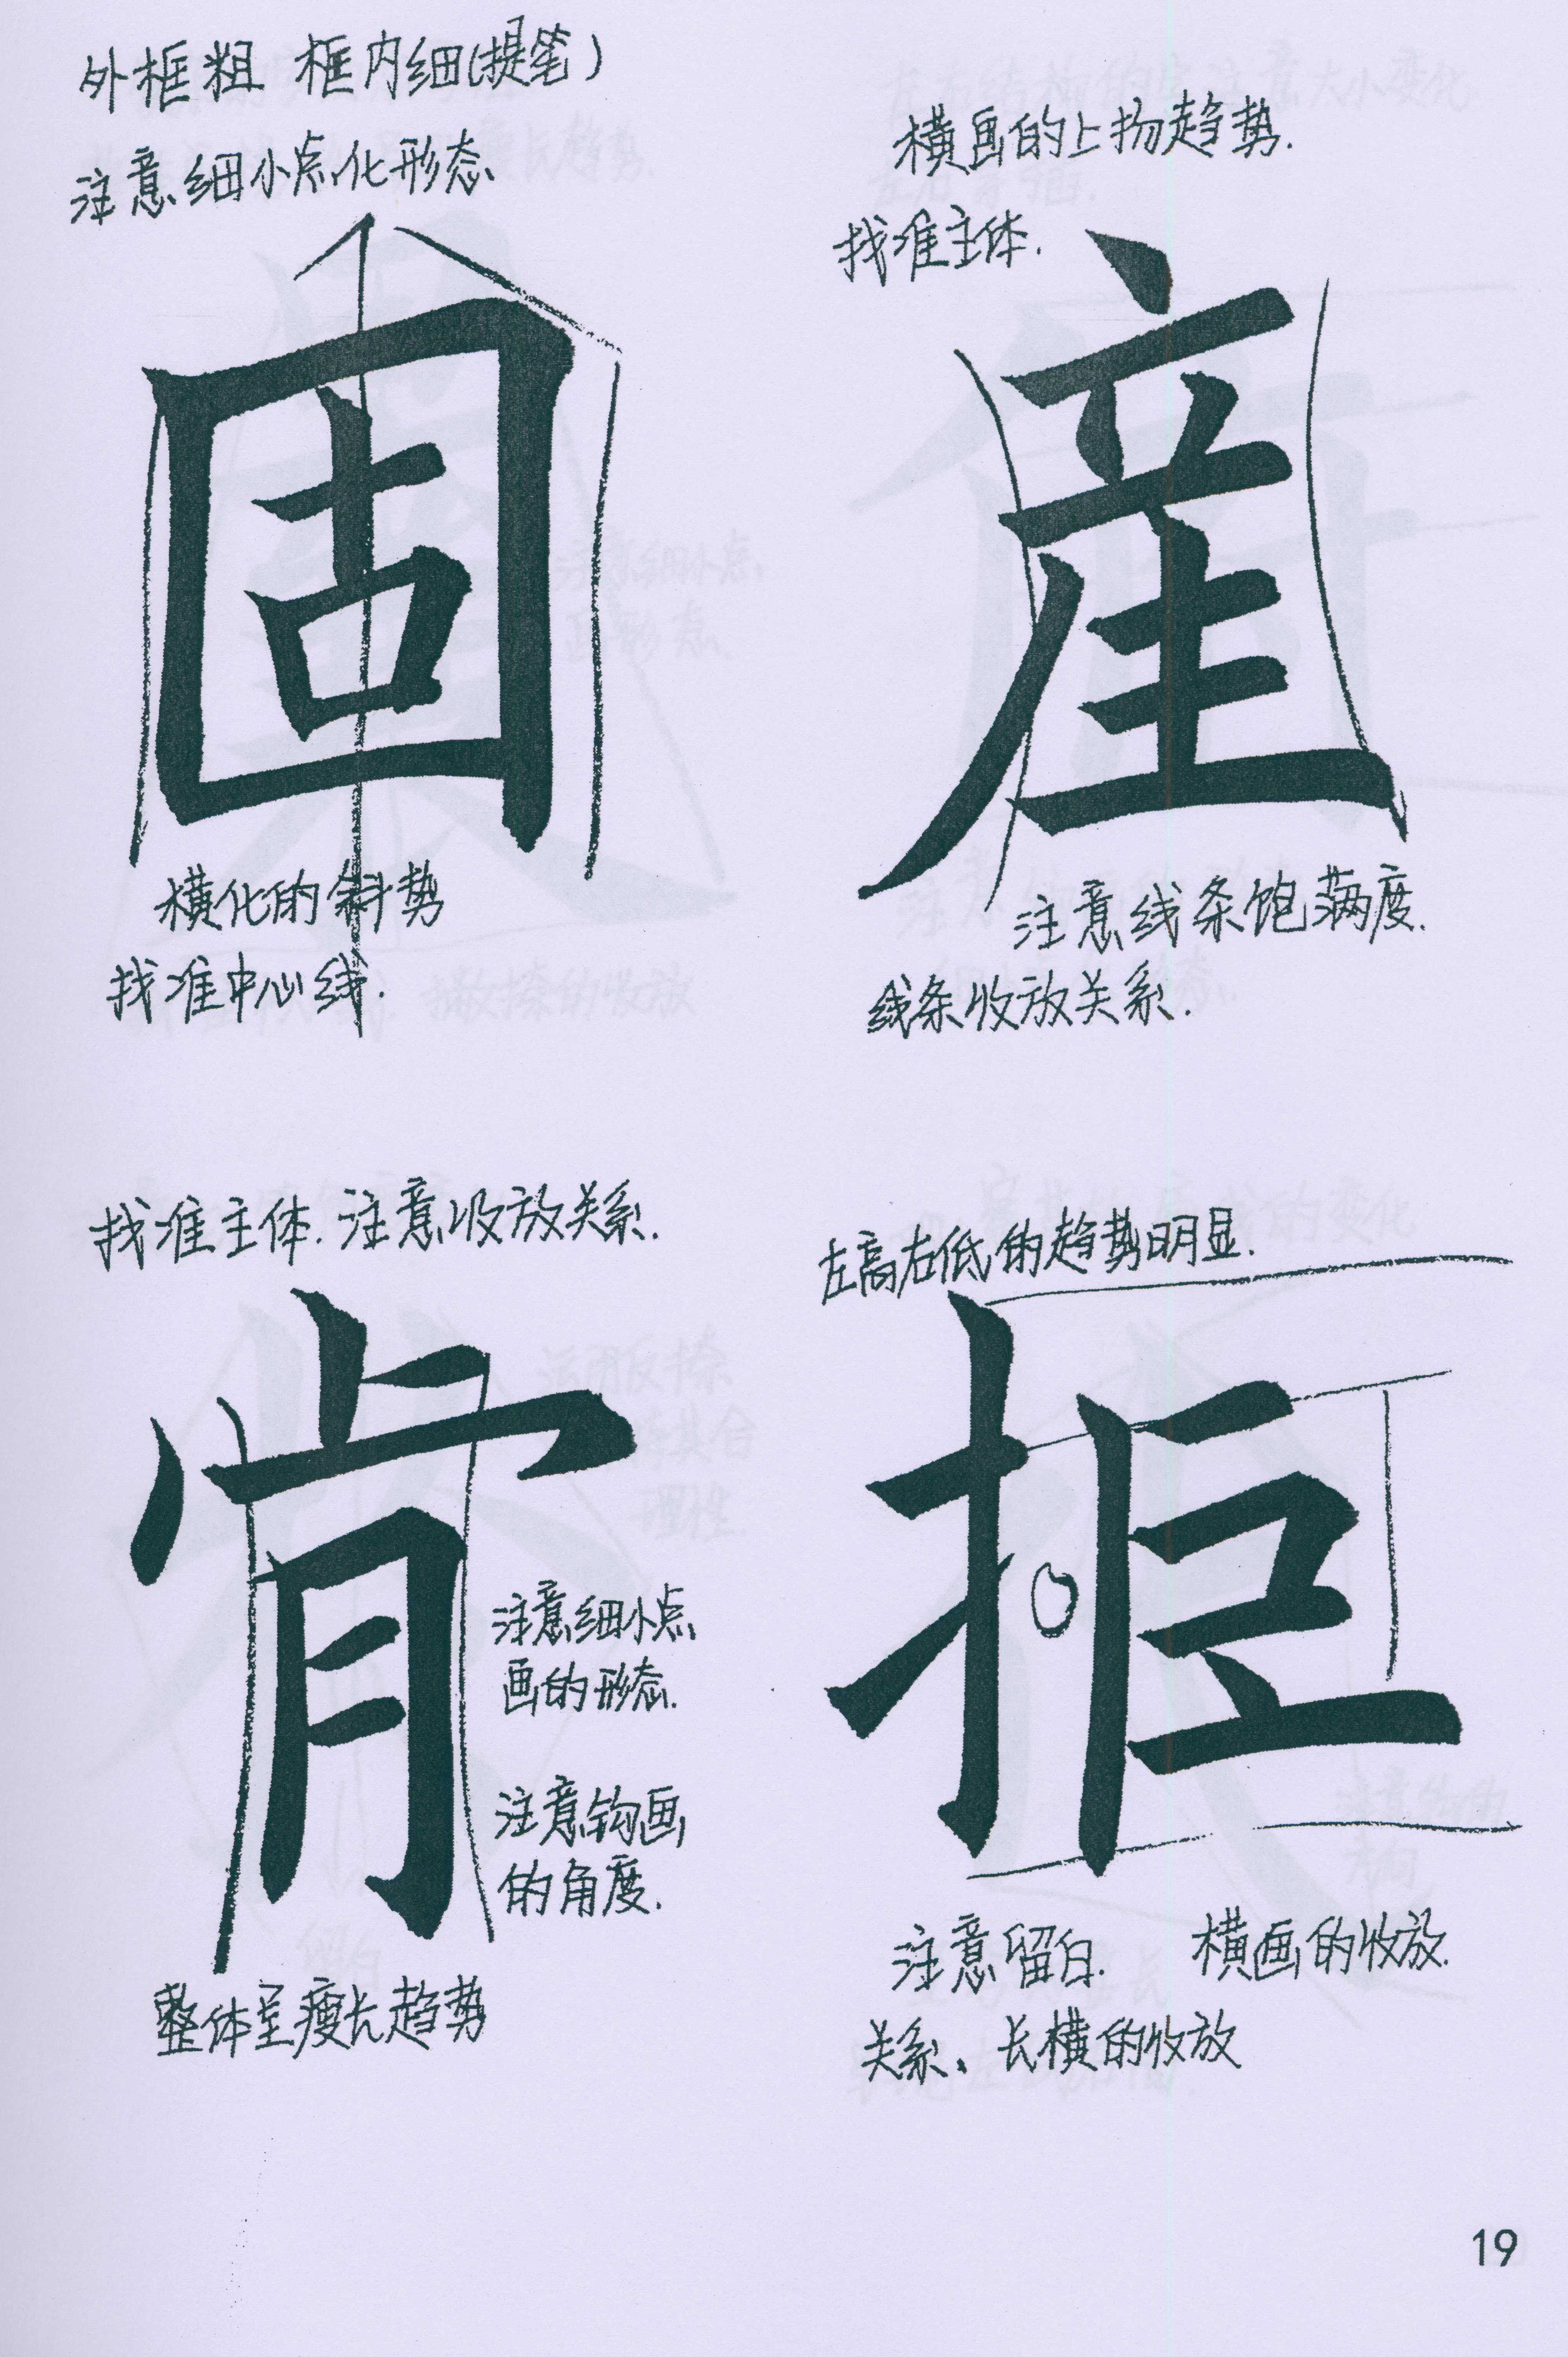 外框粗 框内细(提笔)
注意细小点化形态
固
横化的斜势
找准中心线.
横画的上扬趋势.
找准主体.
産
注意线条饱满度.
线条收放关系.
找准主体.注意收放关系.
注意细小点
画的形态.
注意钩画
的角度.
整体呈瘦长趋势
左高右低的趋势明显.
拒
注意留白. 横画的收放.
关系、长横的收放
19